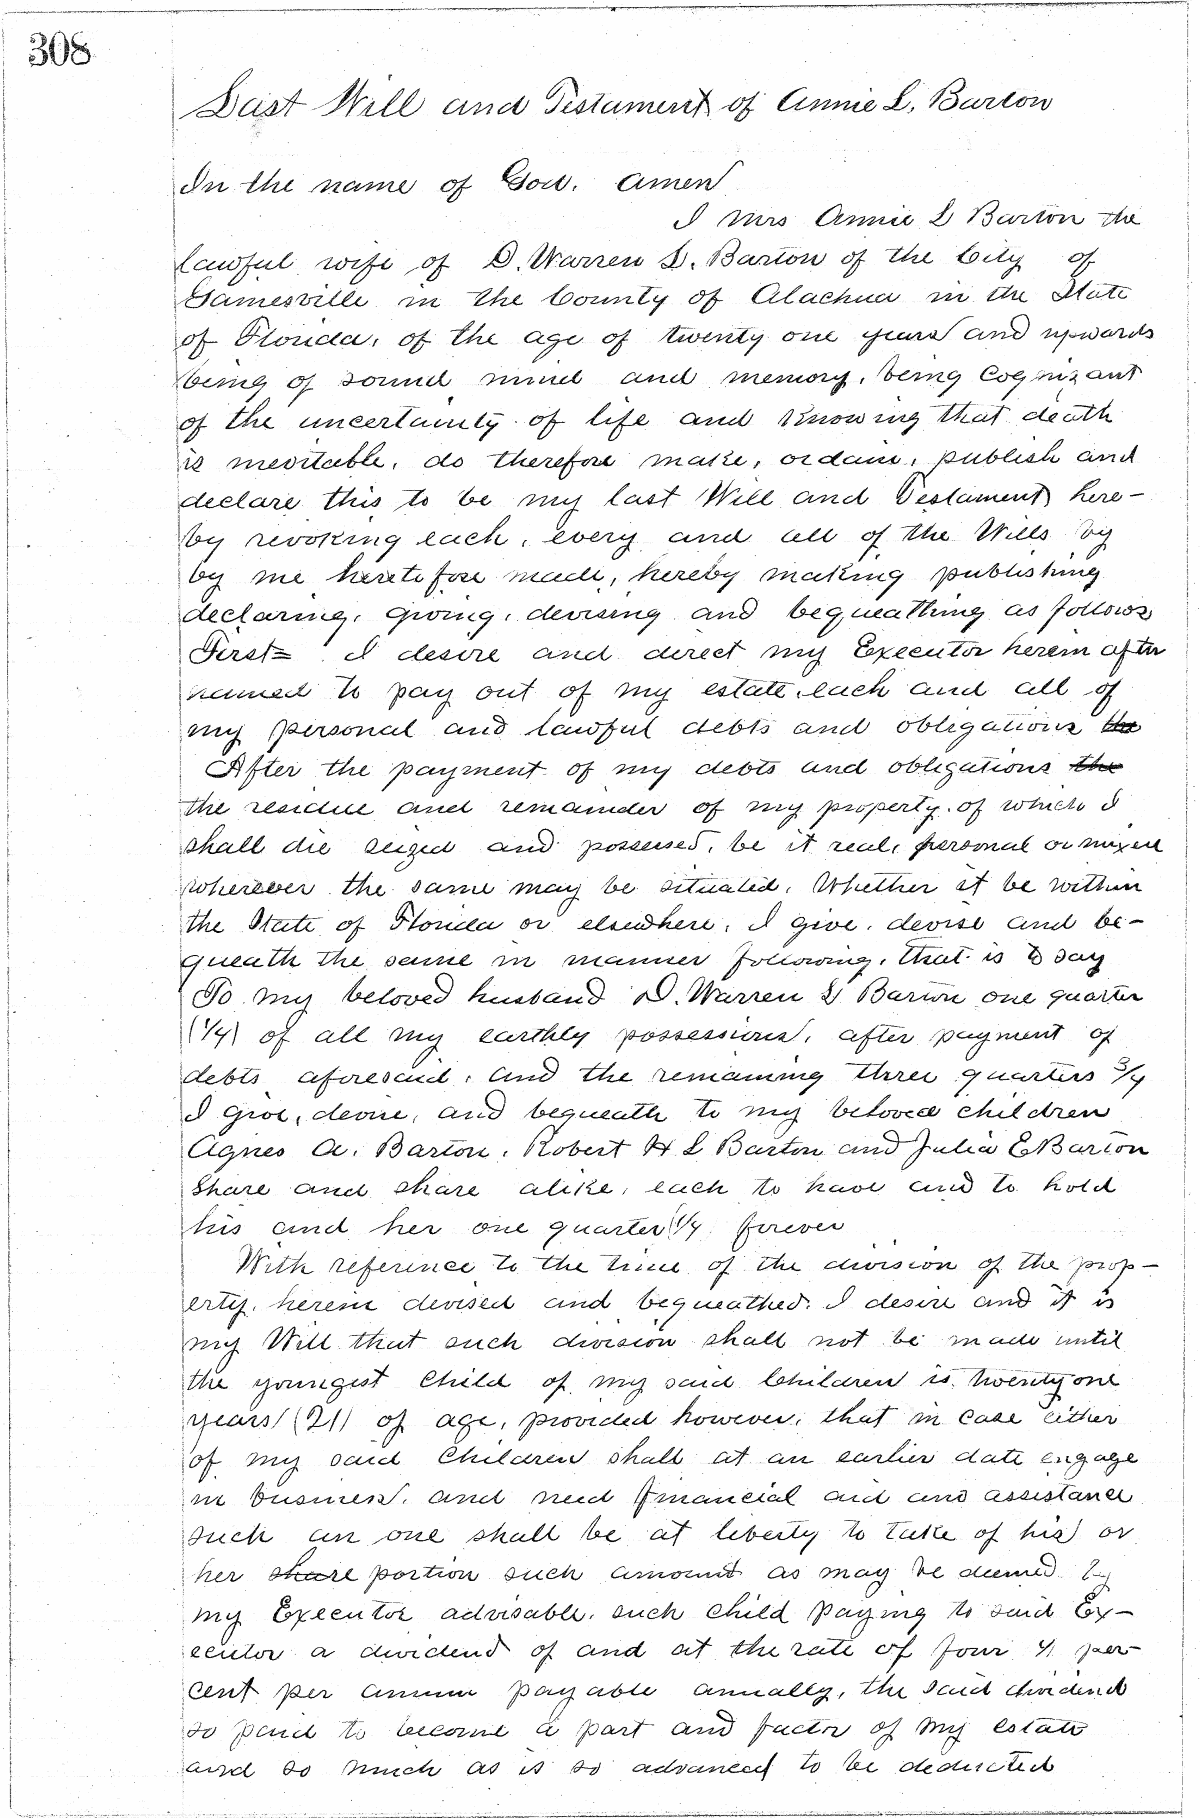 308
Last Will and Testament of Annie L. Barton
In the name of God. Amen
I Mrs Annie L Barton the
lawful wife of D. Warren L. Barton of the City of
Gainesville in the County of Alachua in the State
of Florida, of the age of twenty one years and upwards
being of sound mind and memory, being Cognizant
of the uncertainty of life and knowing that death
is inevitable, do therefore make, ordain, publish and
declare this to be my last Will and Testament here-
by revoking each, every and all of the Wills by
by me heretofore made, hereby making publishing
declaring, giving, devising and bequeathing as follows
First= I desire and direct my Executor herein after
named to pay out of my estate, each and all of
my personal and lawful debts and obligations the
After the payment of my debts and obligations the
the residue and remainder of my property of which I
shall die seized and possessed, be it real, personal or mixed
wherever the same may be situated, Whether it be within
the State of Florida or elsewhere, I give, devise and be-
queath the same in manner following, that is to say
To my beloved husband D. Warren L Barton one quarter
(1/4) of all my earthly possessions, after payment of
debts aforesaid, and the remaining three quarters 3/4
I give, devise, and bequeath to my beloved children
Agnes A. Barton, Robert H L Barton and Julia E Barton
Share and share alike, each to have and to hold
his and her one quarter 1/4 forever
With reference to the time of the division of the prop-
erty, herein devised and bequeathed. I desire and it is
my Will that such division shall not be made until
the youngest Child of my said Children is twenty one
years (21) of age, provided however, that in case either
of my said Children shall at an earlier date engage
in business, and need financial aid and assistance
such an one shall be at liberty to take of his or
her share portion such amount as may be deemed by
my Executor advisable, such child paying to said Ex-
ecutor a dividend of and at the rate of four 4 per
cent per annum payable annually, the said dividend
so paid to become a part and factor of my estate
and so much as is so advanced to be deducted